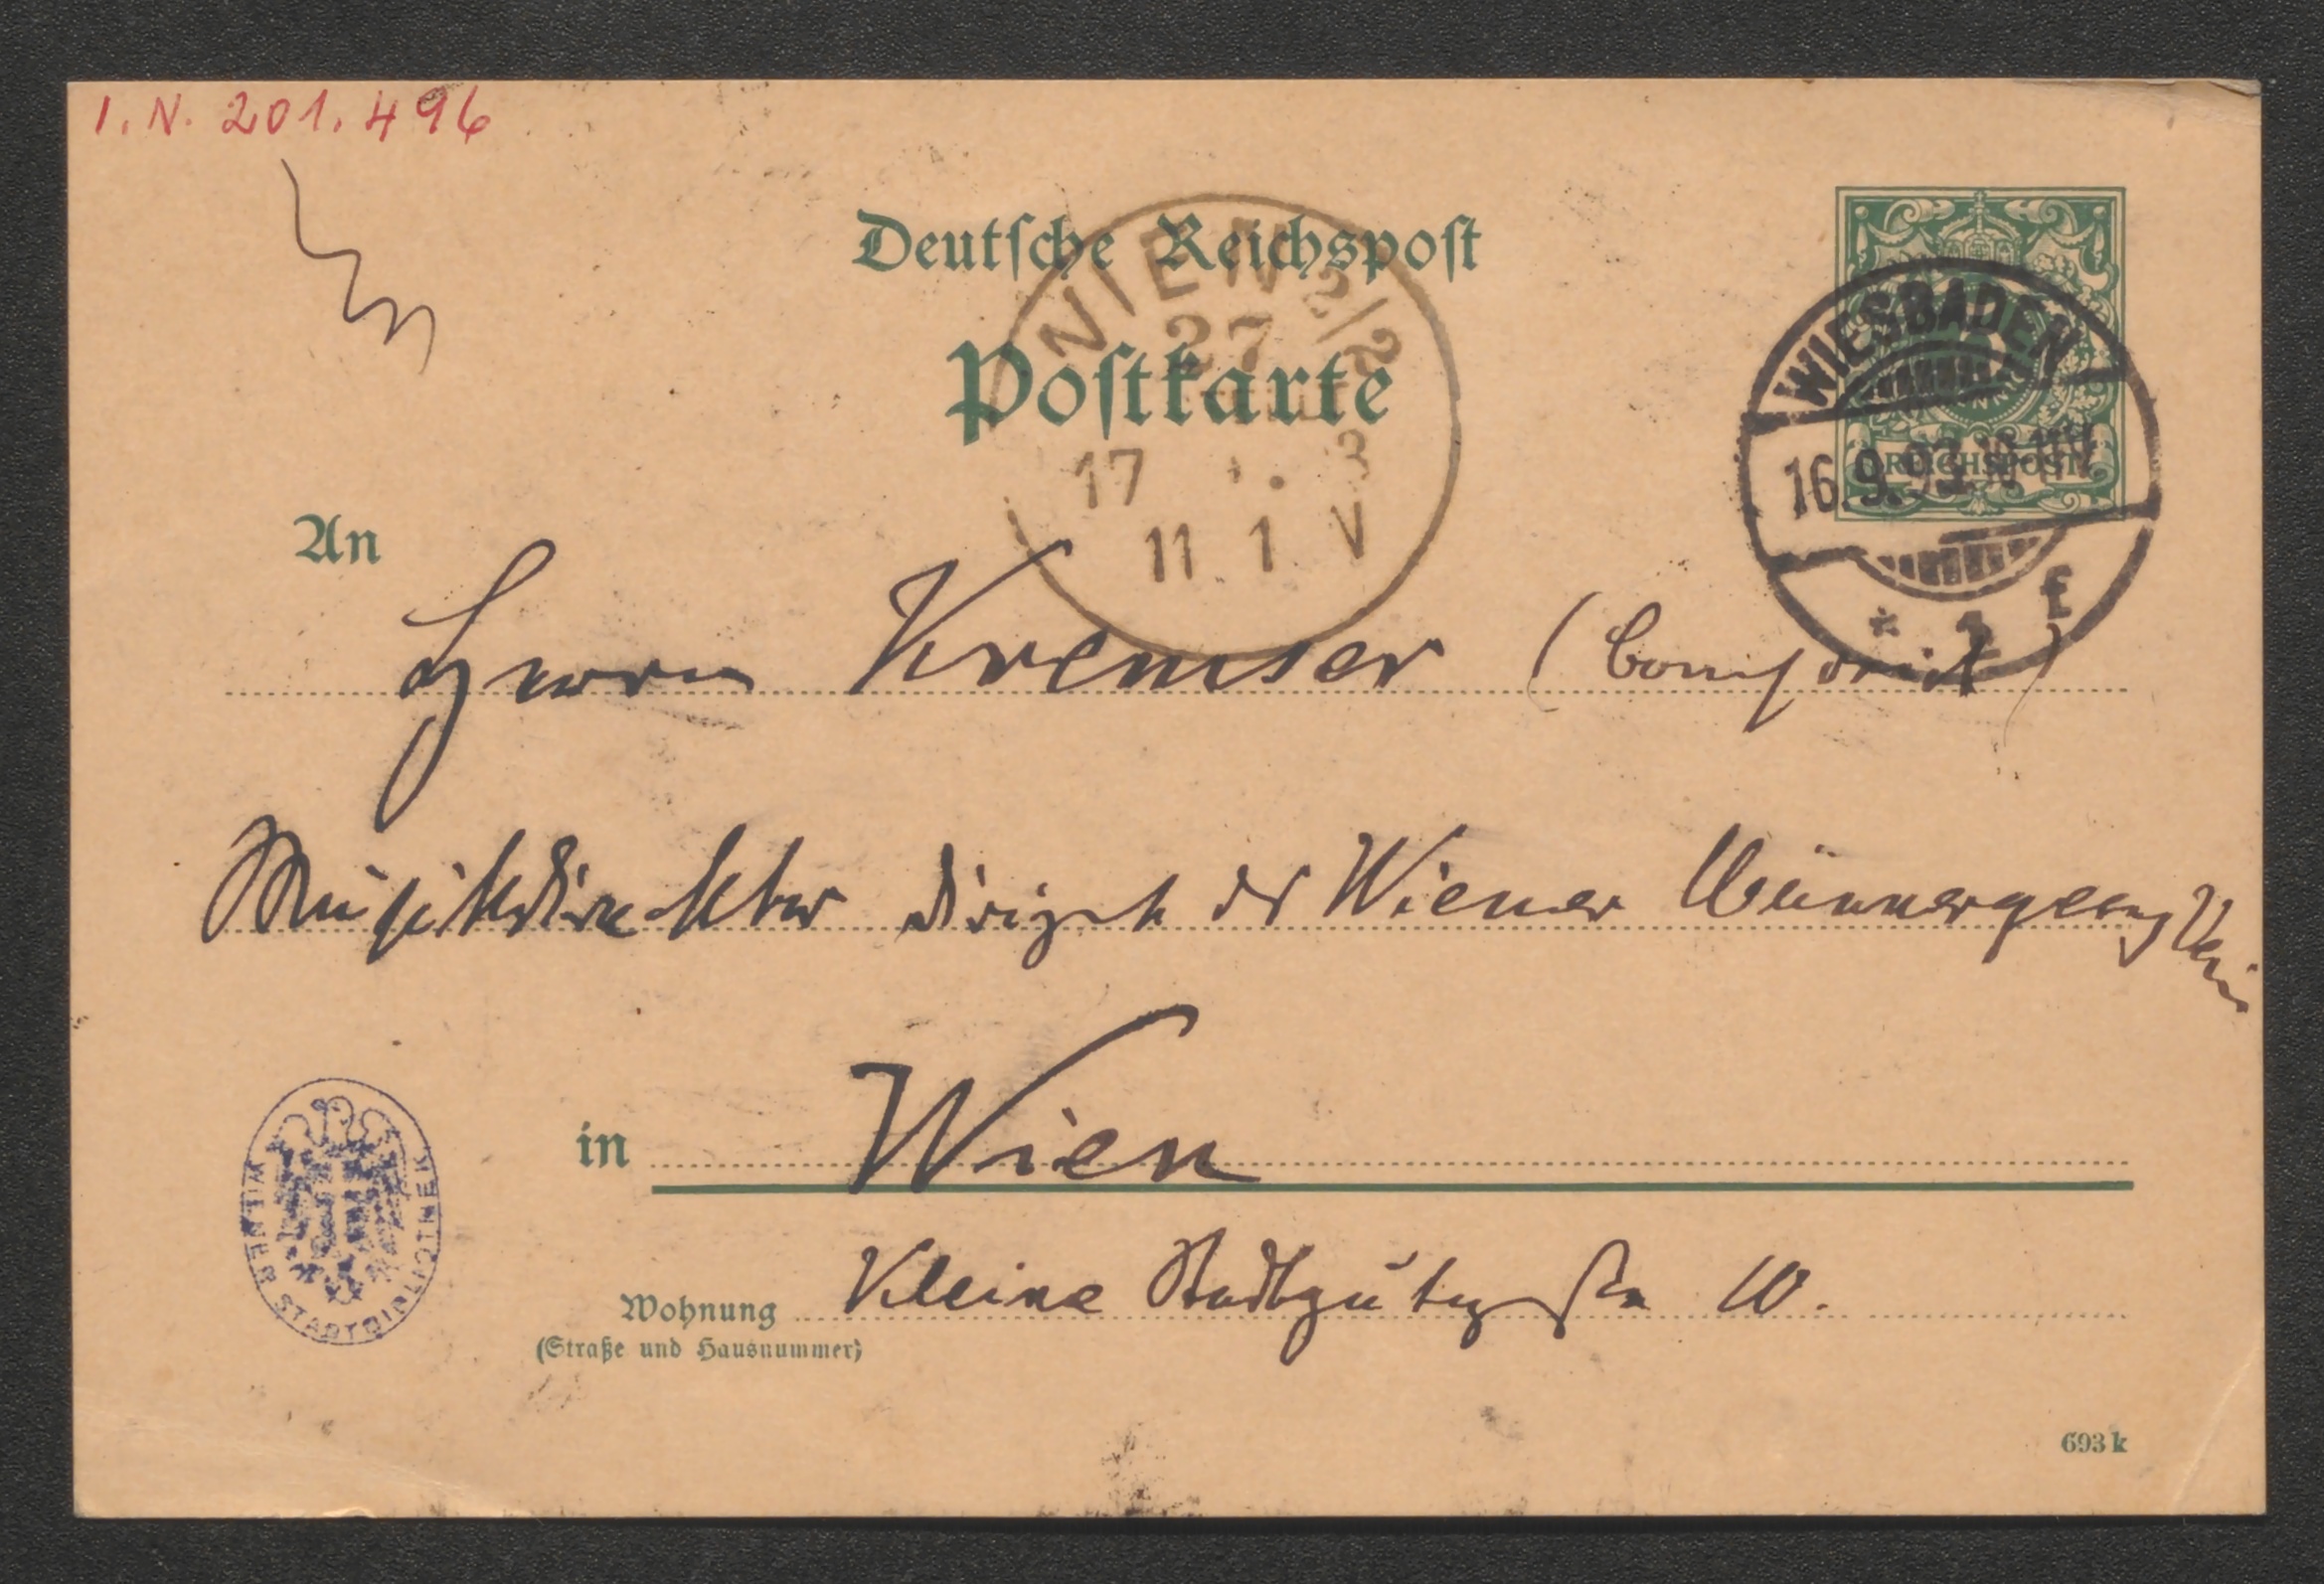 I.N. 201.496
Deutsche Reichspost
Postkarte
WIEN 2/2
27
17
3
11. 1 V
WIESBADEN
16.9.93.
REICHSPOST
An
Herrn Kremser (Componist)
Musikdirektor Dirigent des Wiener Männergesang Verein
in Wien
Wohnung Kleine Stadtgutgasse 10.
(Straße und Hausnummer)
WIENER STADTBIBLIOTHEK
693 k